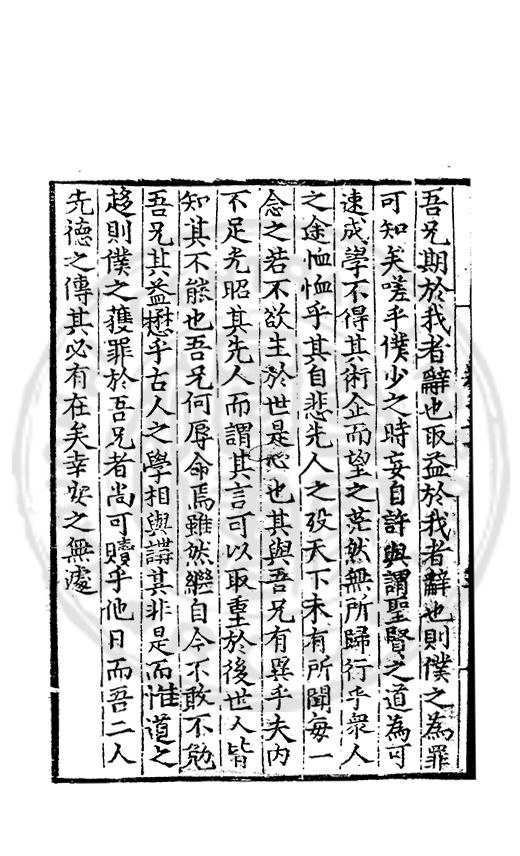 吾兄期於我者辭也取益於我者辭也則僕之為罪
可知矣嗟乎僕少之時妄自許與謂聖賢之道為可
速成學不得其術企而望之茫然無所歸行乎衆人
之途恤恤乎其自悲先人之歿天下未有所聞每一
念之若不欲生於世是心也其與吾兄有異乎夫内
不足光昭其先人而謂其言可以取重於後世人皆
知其不能也吾兄何辱命焉雖然繼自今不敢不勉
吾兄其益懋乎古人之學相與講其非是而惟道之
趍則僕之獲罪於吾兄者尚可贖乎他日而吾二人
先德之傳其必有在矣幸安之無遽